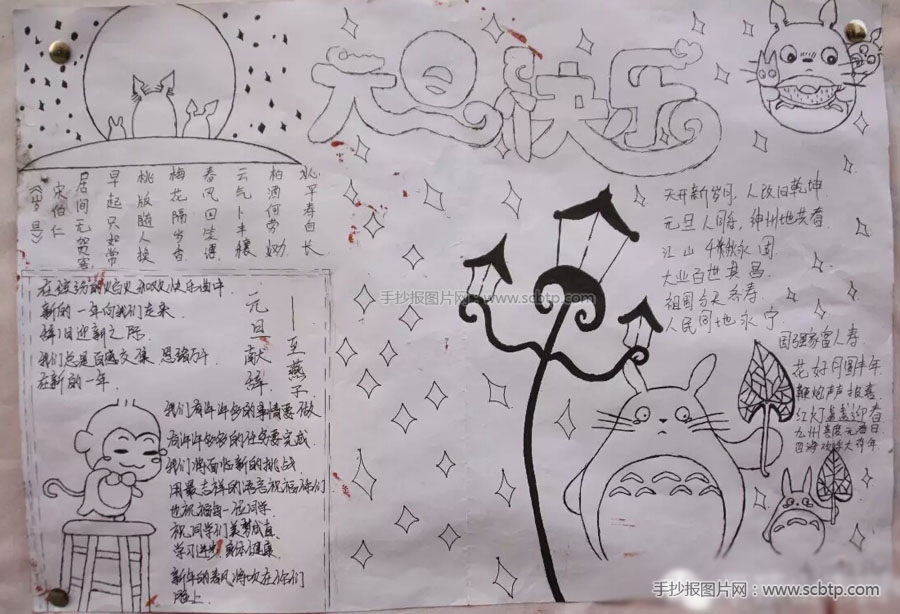 元旦快乐
居间无贺客
早起只如常
桃版随人换
梅花隔岁香
春风回笑语
云气卜丰穰
柏酒何劳劝
心平寿自长
宋伯仁
《岁旦》
新的一年向我们走来
辞旧迎新之际
我们总是百感交集 思绪万千
在新的一年
元旦献辞
——王燕子
我们有许许多多的事情要做
有许许多多的任务要完成
我们将面临新的挑战
用最吉祥的语言祝福你们
也祝福每一位同学
祝同学们美梦成真
学习进步 身体健康
新年的春风将吹在你们
脸上
天开新岁月，人改旧乾坤
元旦人同乐，神州地共春
江山千秋永固
大业百世其昌
人民同地永宁
国强家富人寿
花好月圆丰年
鞭炮声声报喜
手抄报图片网：www.scbtp.com
手抄报图片网：www.scbtp.com